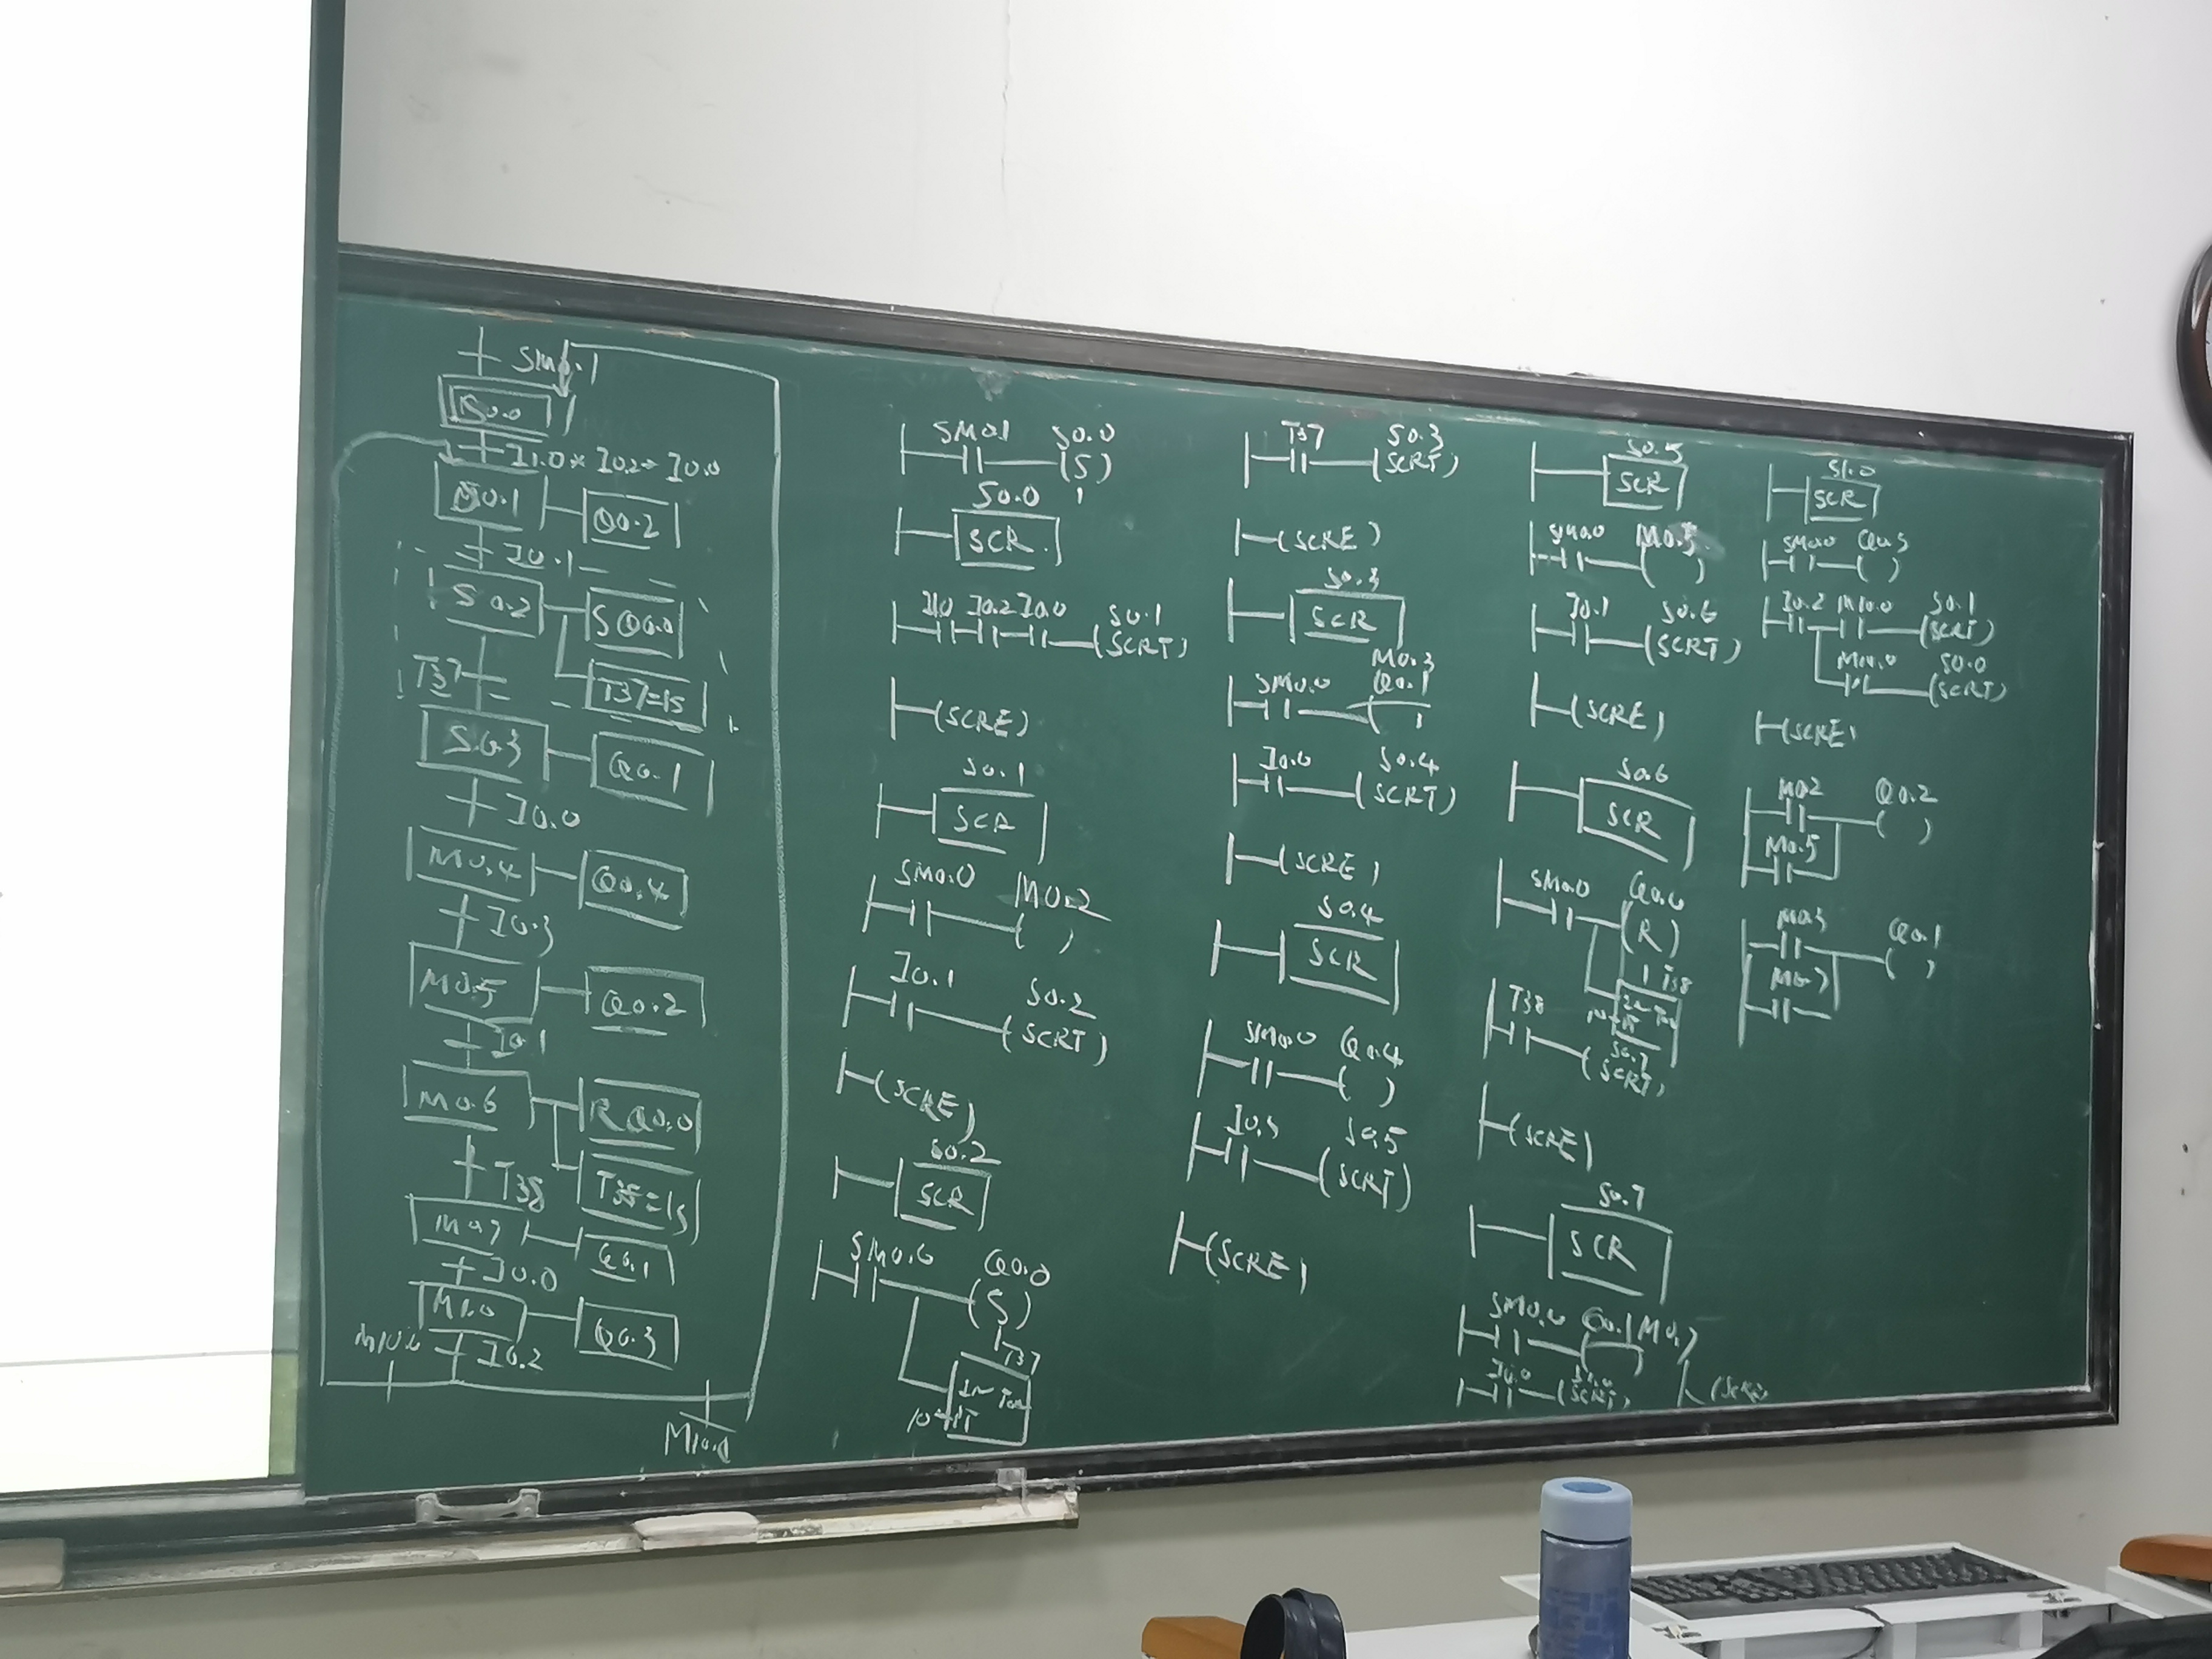 SM0.1
S0.0
I1.0*I0.2*I0.0
S0.1 Q0.2
I0.1
S0.2 S Q0.0
T37 T37=1S
S0.3 Q0.1
I0.0
M0.4 Q0.4
I0.3
M0.5 Q0.2
I0.1
M0.6 R Q0.0
T38 T38=1S
M0.7 Q0.1
I0.0
M1.0 Q0.3
M10.0 I0.2
M10.0
SM0.1 S0.0
(S)
1
S0.0
SCR
I1.0 I0.2 I0.0 S0.1
(SCRT)
(SCRE)
S0.1
SCR
SM0.0 M0.2
( )
I0.1 S0.2
(SCRT)
(SCRE)
S0.2
SCR
SM0.0 Q0.0
(S)
1 T37
IN TON
10 PT
T37 S0.3
(SCRT)
(SCRE)
S0.3
SCR
M0.3
SM0.0 Q0.1
( )
I0.0 S0.4
(SCRT)
(SCRE)
S0.4
SCR
SM0.0 Q0.4
( )
I0.3 S0.5
(SCRT)
(SCRE)
S0.5
SCR
SM0.0 M0.5
( )
I0.1 S0.6
(SCRT)
(SCRE)
S0.6
SCR
SM0.0 Q0.0
(R)
1 T38
IN TON
PT
T38 S0.7
(SCRT)
(SCRE)
S0.7
SCR
SM0.0 Q0.1 M0.7
( )
I0.0 S1.0
(SCRT) (SCRE)
S1.0
SCR
SM0.0 Q0.3
( )
I0.2 M10.0 S0.1
(SCRT)
M10.0 S0.0
(SCRT)
(SCRE)
M0.2 Q0.2
( )
M0.5
M0.3 Q0.1
( )
M0.7